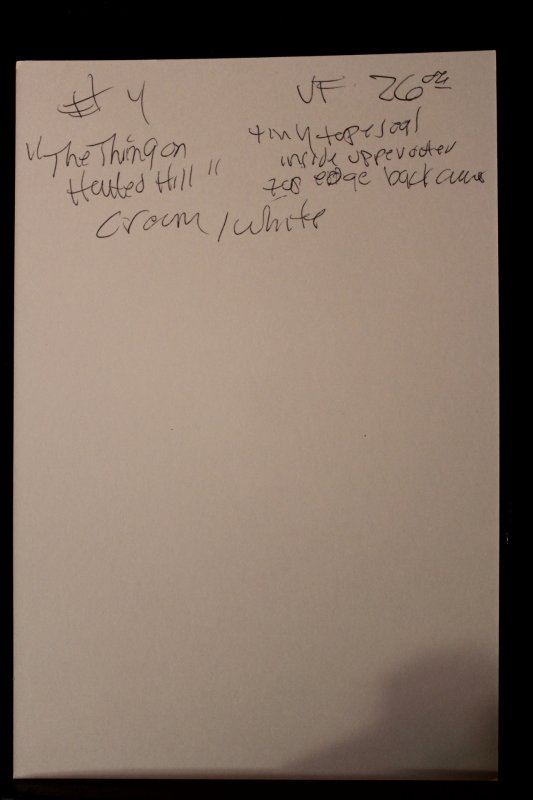 #4
VF 26.00
"The Thing on
Hauted Hill"
Cream/White
tiny tape seal
inside upper outer
top edge back cover